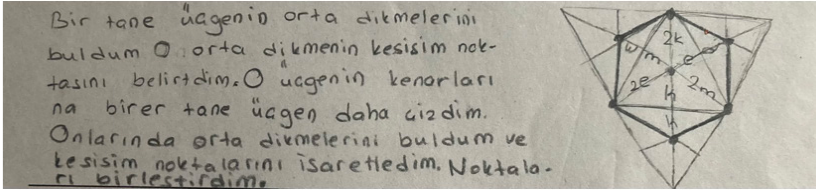 Bir tane üçgenin orta dikmelerini
buldum O orta dikmenin kesisim nok-
tasını belirtdim. O üçgenin kenarları
na birer tane üçgen daha çizdim.
Onlarında orta dikmelerini buldum ve
kesisim noktalarını isaretledim. Noktala-
rı birlestirdim.
2k
m
e
2e
2m
k
k